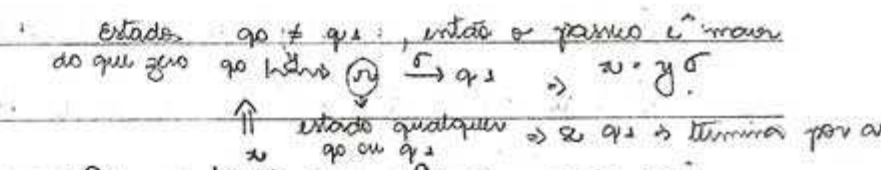 Estados q0 ≠ q1 : , então o passo é maior
do que zero q0 (r) σ→ q1 => x = yσ.
estado qualquer => se q1 => termina por a
x q0 ou q1